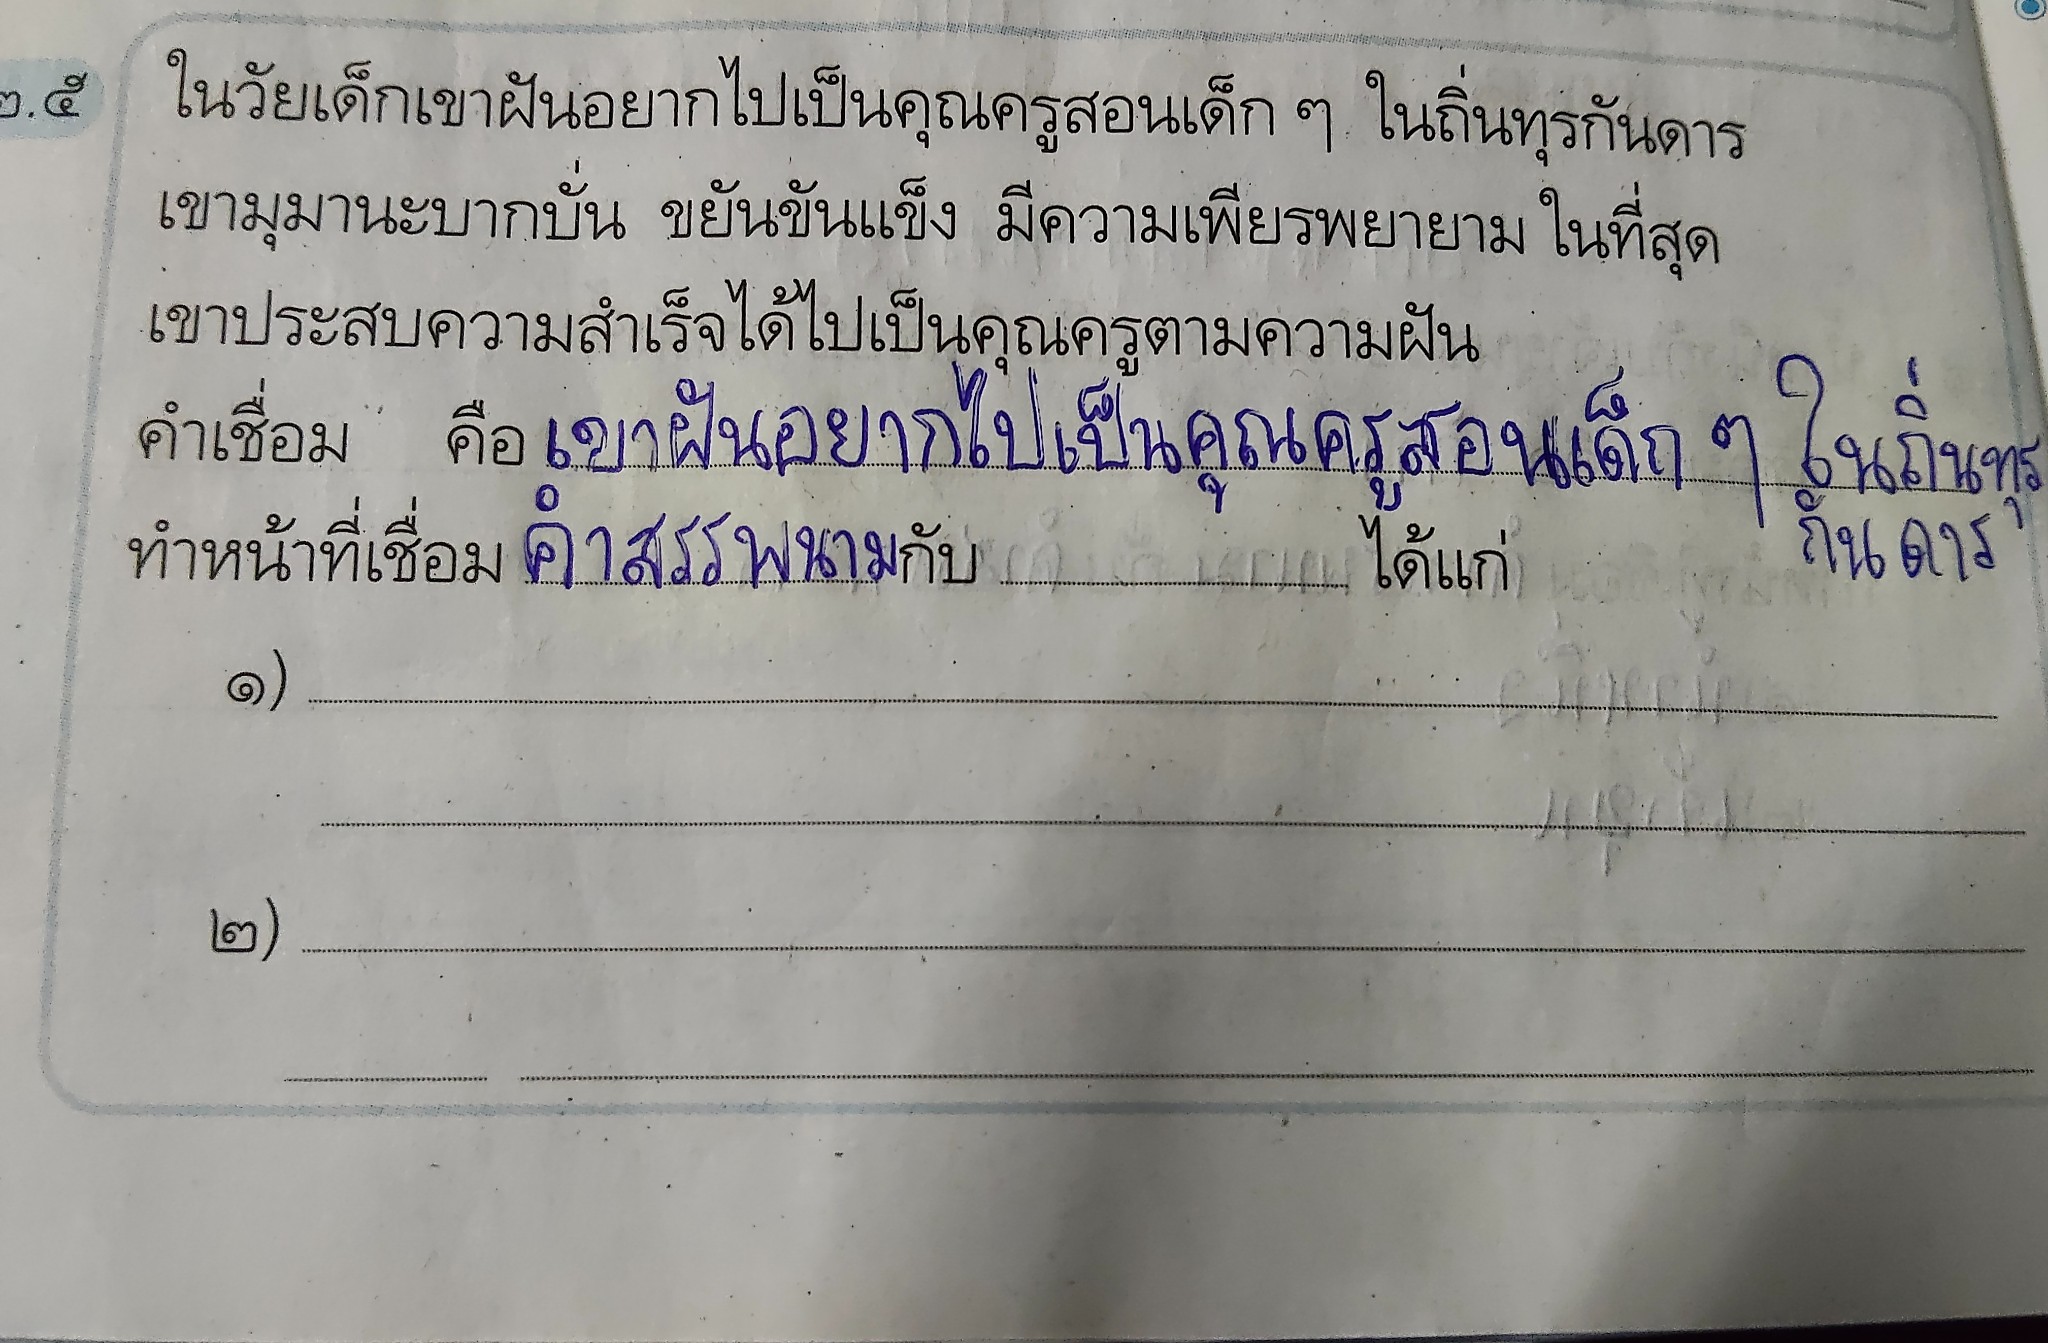 ๒.๕ ในวัยเด็กเขาฝันอยากไปเป็นคุณครูสอนเด็ก ๆ ในถิ่นทุรกันดาร
เขามุมานะบากบั่น ขยันขันแข็ง มีความเพียรพยายาม ในที่สุด
เขาประสบความสำเร็จได้ไปเป็นคุณครูตามความฝัน
คำเชื่อม คือ เขาฝันอยากไปเป็นคุณครูสอนเด็ก ๆ ในถิ่นทุร
กันดาร
ทำหน้าที่เชื่อม คำสรรพนาม กับ ได้แก่
๑)
๒)